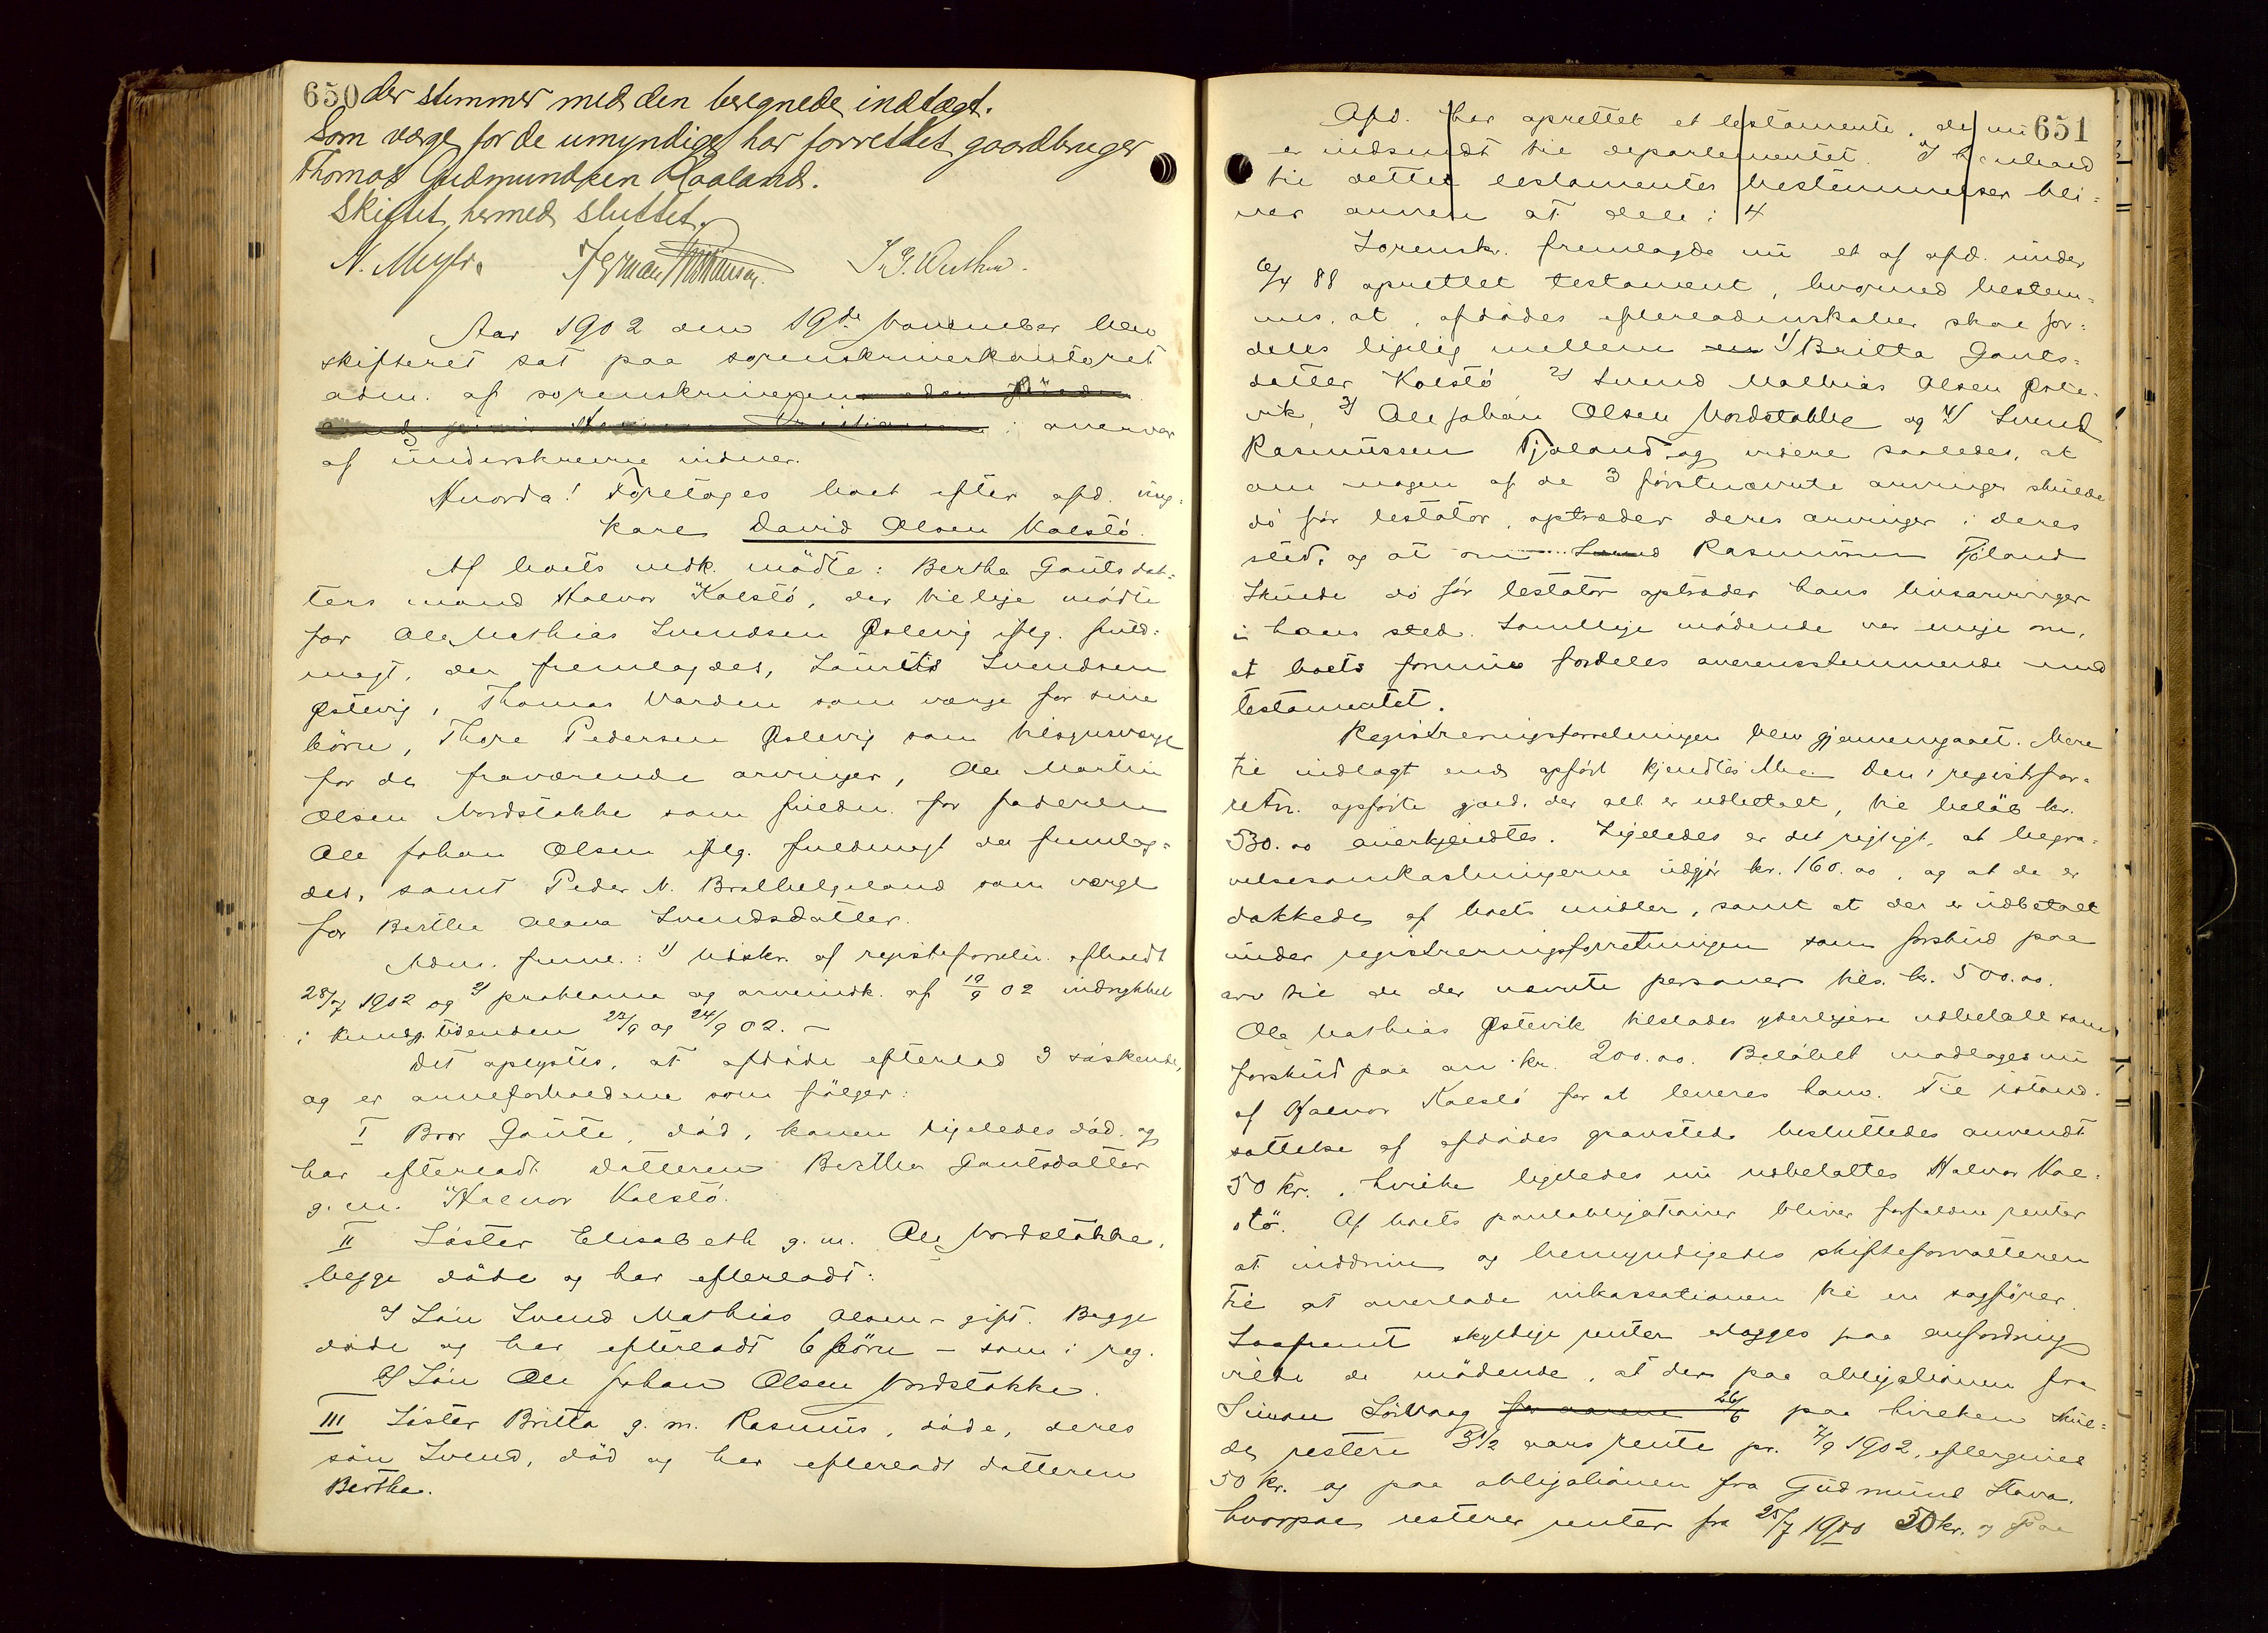 650 der stemmer med den beregnede indtægt.
Som værge for de umyndige har forrettet gaardbruger
Thomas Gudmundsen Haaland.
Skiftet hermed sluttet.
N. Meyer.
Aar 1902 den 19de november blev
skifteret sat paa sorenskriverkontoret
adm. af sorenskriveren i overvær
af underskrevne vidner.
Hvorda! Foretoges boet efter afd. ung-
karl David Olsen Kalstö.
Af boets vedk. mödte: Bertha Gautsdat-
ters mand Halvor Kalstö, der tillige mödte
for Ole Mathias Svendsen Østevig iflg. fuld-
magt, der fremlagdes, Laurits Svendsen
Østevig, Thomas Varden som værge for sine
börn, Thore Pedersen Østevig som tilsynsværge
for de fraværende arvinger, Ole Martin
Olsen Nordstokke som fuldm. for faderen
Ole Johan Olsen iflg. fuldmagt der fremlag-
des, samt Peder N. Bratthelgeland som værge
for Berthe Olava Svendsdatter.
Adm. freml.: 1) Udskr. af registrforretn. afholdt
28/7 1902 og 2) proklama og arveindk. af 19/9 02 indrykket
i Kundg. tidenden 22/9 og 24/9 02. –
Det oplystes, at afdöde efterlod 3 söskende,
og er arveforholdene som fölger:
I Bror Gaute, död, konen ligeledes död og
har efterladt datteren Berthe Gautsdatter
g. m. Halvor Kalstö.
II Söster Elisabeth g. m. Ole Nordstokke,
begge döde og har efterladt:
a) Sön Svend Mathias Olsen – gift. Begge
döde og har efterladt 6 börn – som i reg.
b) Sön Ole Johan Olsen Nordstokke.
III Söster Britta g. m. Rasmus, döde, deres
sön Svend, död og har efterladt datteren
Berthe.
651
Afd. har oprettet et testamente, der nu
er indsendt til departementet. I henhold
til dette testamentes bestemmelser bli-
ver arven at dele i 4
Sorenskr. fremlagde nu et af afd. under
6/4 88 oprettet testament, hvorved bestem-
mes, at afdödes efterladenskaber skal for-
deles ligelig mellem 1) Britta Gauts-
datter Kalstö 2) Svend Mathias Olsen Øste-
vik, 3) Ole Johan Olsen Nordstokke og 4) Svend
Rasmussen Tjoland og videre saaledes, at
om nogen af de 3 förstnævnte arvinger skulde
dö för testator, optræder deres arvinger i deres
sted, og at om Svend Rasmussen Tjoland
skulde dö för testator optræder hans livsarvinger
i hans sted. Samtlige mödende var enige om,
at boets formue fordeles overensstemmende med
testamentet.
Registreringsforretningen blev gjennemgaaet. Mere
til indtægt end opfört kjendtes ikke. Den i registrfor-
retn. opförte gjæld, der alt er udbetalt, til belöb kr.
530.00 anerkjendtes. Ligeledes er det rigtigt, at begra-
velsesomkostningerne udgjör kr. 160.00, og at de er
dækkede af boets midler, samt at der er udbetalt
under registreringsforretningen som forskud paa
arv til de der nævnte personer tils. kr. 500.00.
Ole Mathias Østevik tilstodes yderligere udbetalt som
forskud paa arv kr. 200.00. Belöbet modtoges nu
af Halvor Kalstö for at leveres ham. Til istand-
sættelse af afdödes gravsted besluttedes anvendt
50 kr., hvilke ligeledes nu udbetaltes Halvor Kal-
stö. Af boets panteobligationer bliver forfaldne renter
at inddrive og bemyndigedes skifteforvalteren
til at overlade inkassationen til en sagförer.
Saafremt skyldige renter erlægges paa anfordring
vilde de mödende, at der paa obligationen fra
Simon Sörvaag for aarene 26/6 paa hvilken skul-
de restere 3 1/2 aars rente pr. 7/9 1902, eftergives
50 kr. og paa obligationen fra Gudmund Stava.
hvorpaa resterer renter fra 25/7 1900 50 kr. og Paa